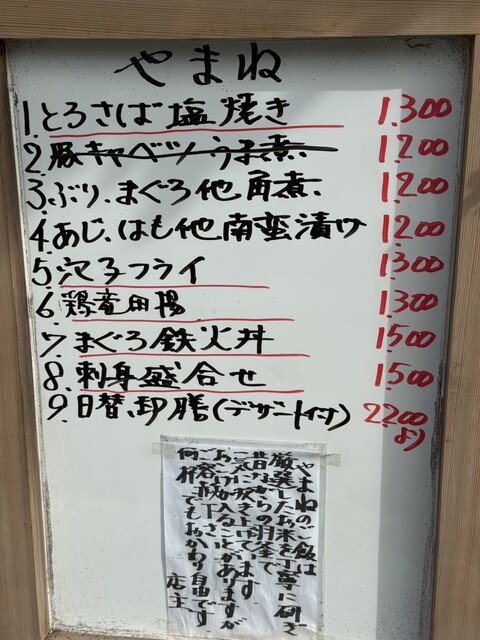 やまね
1.とろさば塩焼き 1.300
2.豚キャベツうま煮. 1.200
3.ぶり、まぐろ他角煮. 1.200
4.あじ、はも他南蛮漬け 1.200
5.穴子フライ 1300
6.鶏竜田揚 1.300
7.まぐろ鉄火丼 1500
8.刺身盛合せ 1.500
9.日替、御膳(デザート付) 2200より
やまねのご飯は
厳選したお米を丁寧に研ぎ
昔ながらの羽釜で
一気に炊き上げてます。
おこげが入ることがありますが
ご容赦下さい。
何杯でもおかわり自由です。
店主